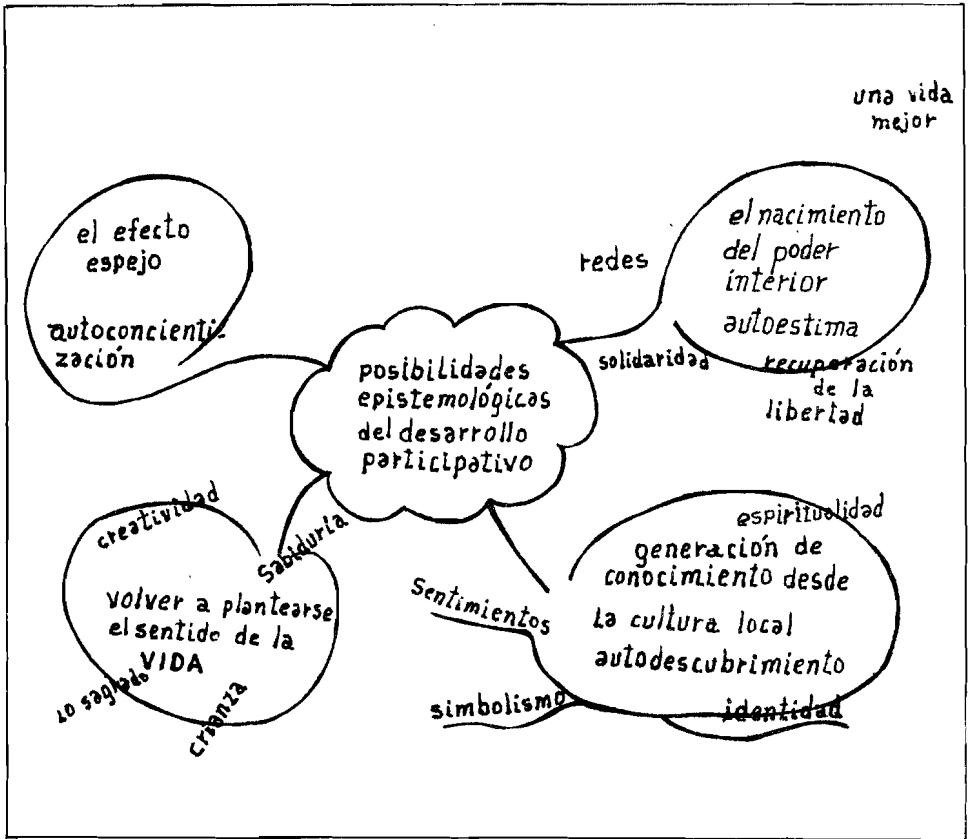 una vida
mejor
el efecto
espejo
autoconcienti-
zación
redes
el nacimiento
del poder
interior
autoestima
solidaridad
recuperación
de la
libertad
posibilidades
epistemológicas
del desarrollo
participativo
creatividad
Sabiduría
volver a plantearse
el sentido de la
VIDA
lo sagrado
crianza
espiritualidad
generación de
conocimiento desde
La cultura local
autodescubrimiento
identidad
Sentimientos
simbolismo